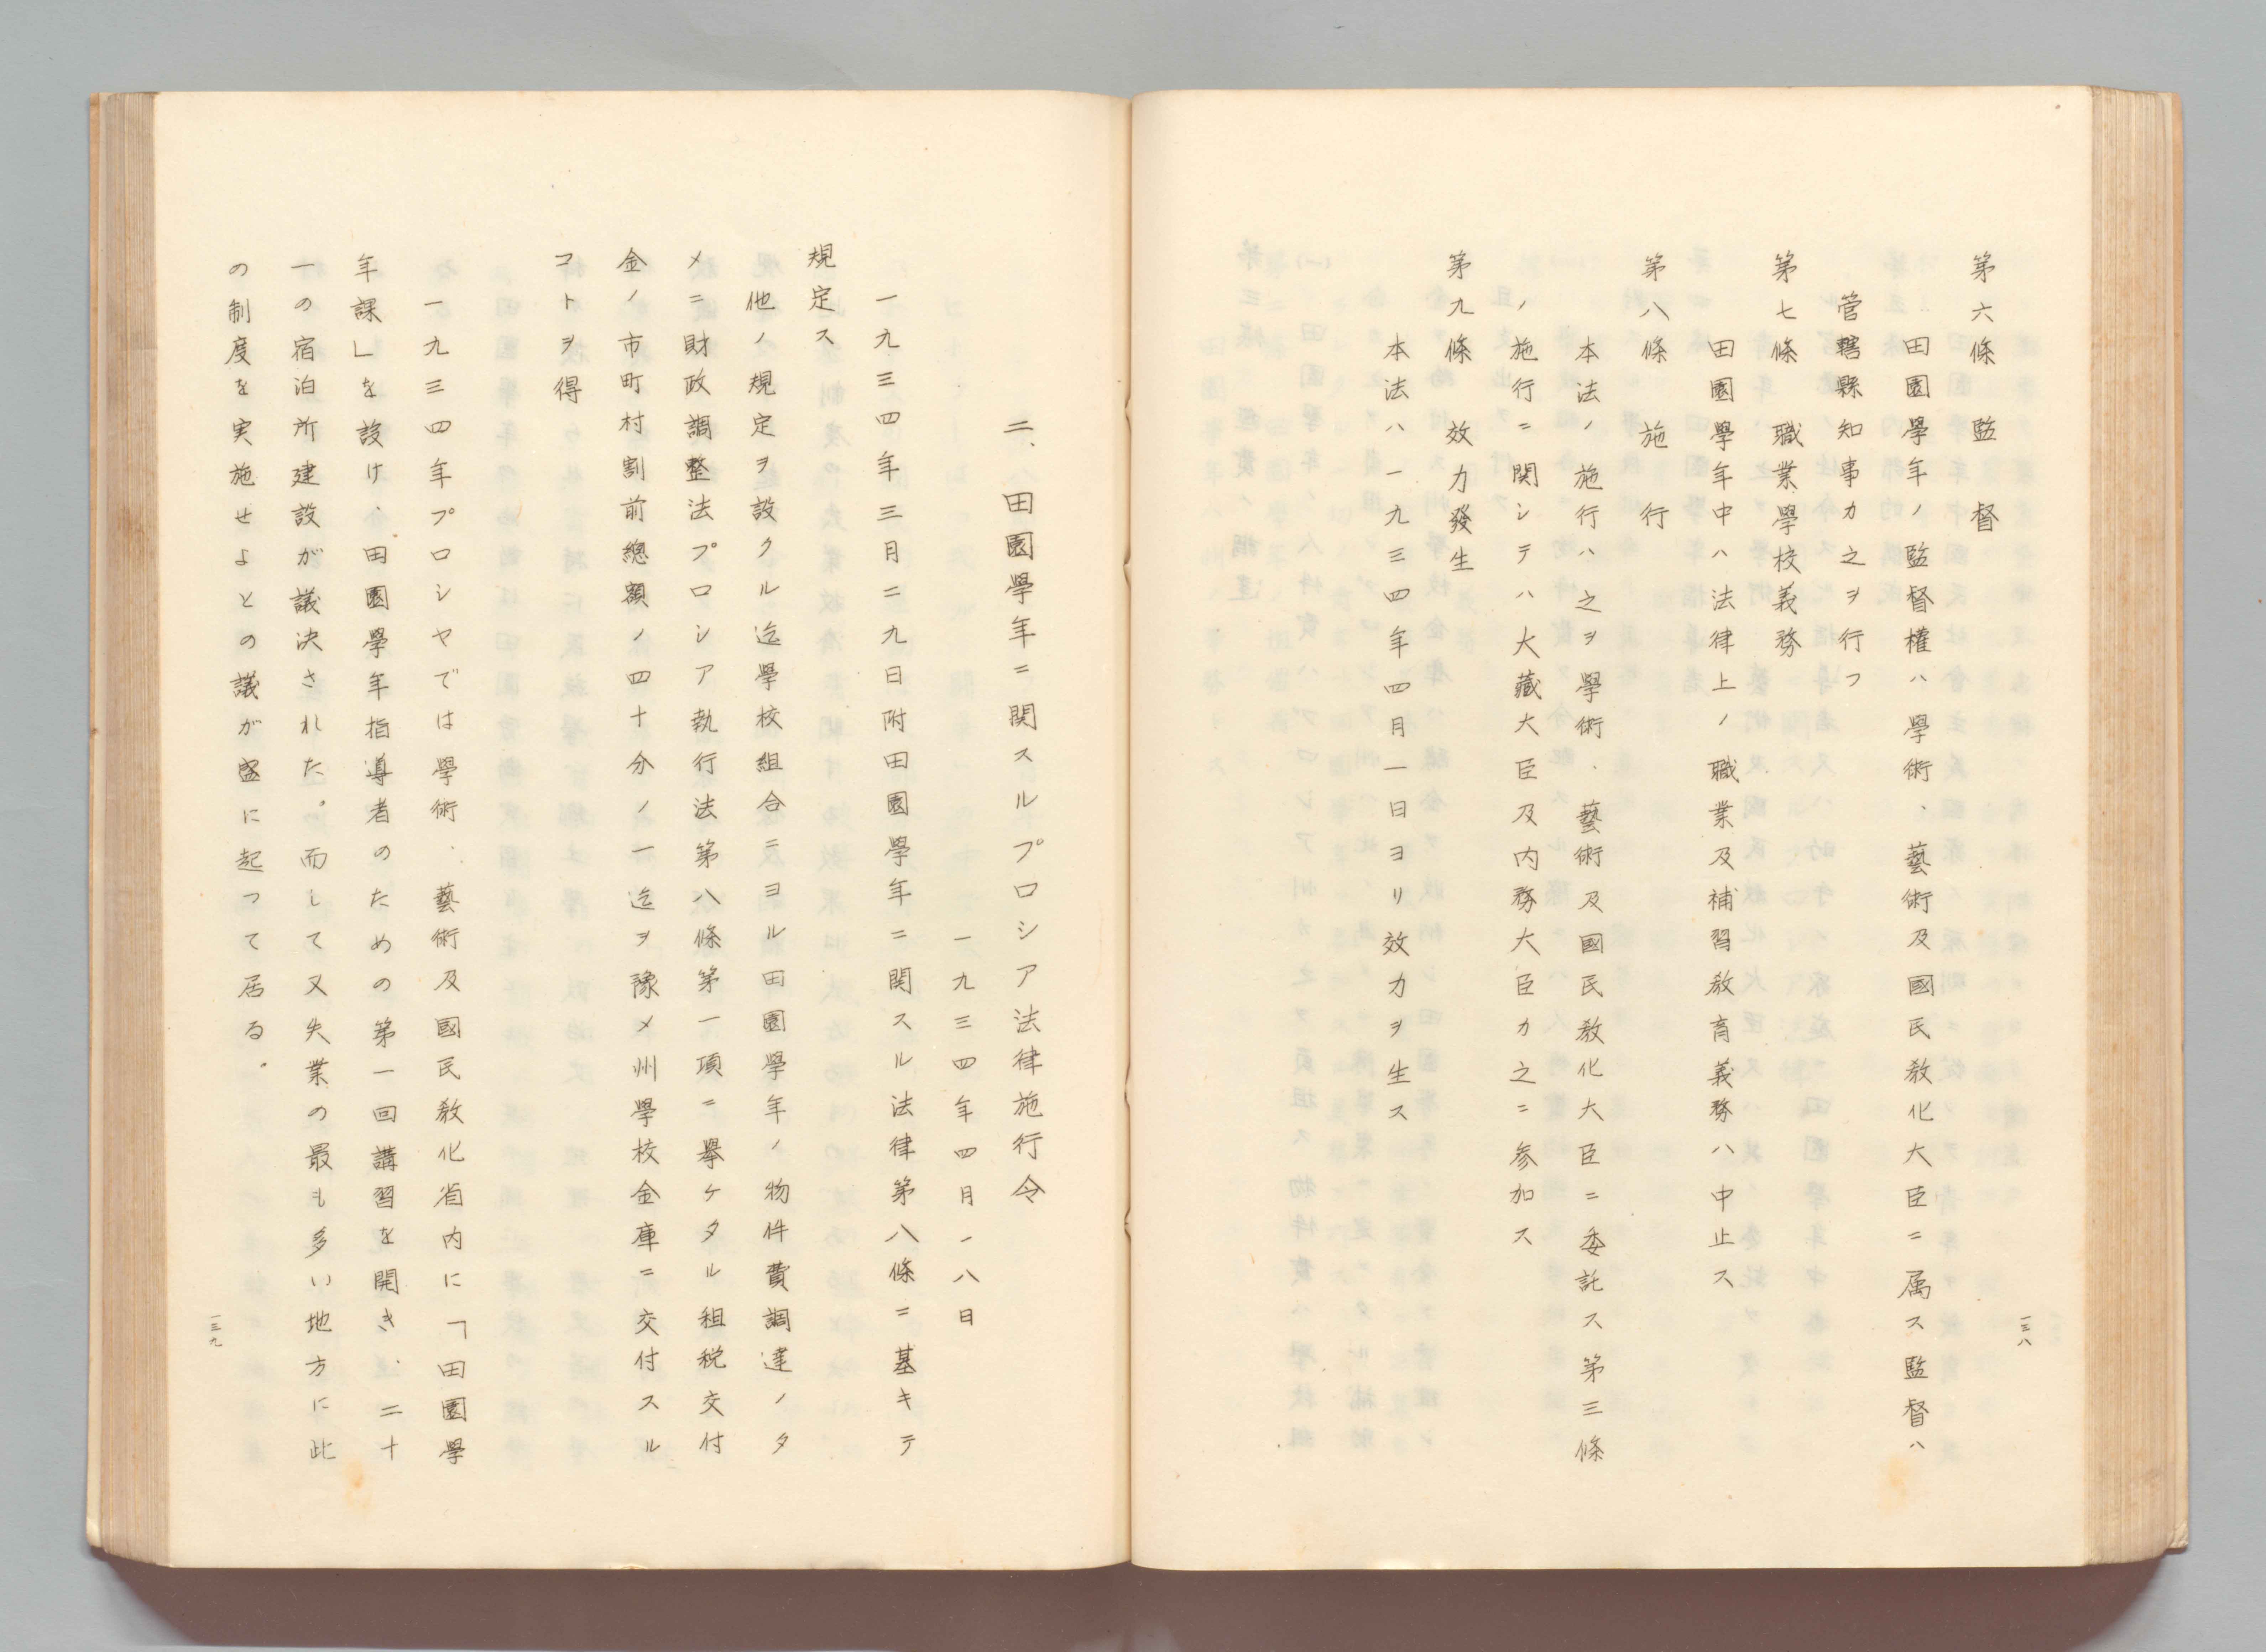 第六條　監督
田園學年ノ監督權ハ學術、藝術及國民敎化大臣ニ属ス監督ハ
管轄縣知事カ之ヲ行フ
第七條　職業學校義務
田園學年中ハ法律上ノ職業及補習敎育義務ハ中止ス
第八條　施行
本法ノ施行ハ之ヲ學術、藝術及國民敎化大臣ニ委託ス第三條
ノ施行ニ関シテハ大藏大臣及内務大臣カ之ニ参加ス
第九條　效力發生
本法ハ一九三四年四月一日ヨリ效力ヲ生ス
一三八
二、田園學年ニ関スルプロシア法律施行令
一九三四年四月一八日
一九三四年三月二九日附田園學年ニ関スル法律第八條ニ基キテ
規定ス
他ノ規定ヲ設クル迄學校組合ニヨル田園學年ノ物件費調達ノタ
メニ財政調整法プロシア執行法第八條第一項ニ擧ケタル租税交付
金ノ市町村割前總額ノ四十分ノ一迄ヲ豫メ州學校金庫ニ交付スル
コトヲ得
一九三四年プロシヤでは學術、藝術及國民敎化省内に「田園學
年課」を設け、田園學年指導者のための第一回講習を開き、二十
一の宿泊所建設が議決された。而して又失業の最も多い地方に此
の制度を実施せよとの議が盛に起って居る。
一三九